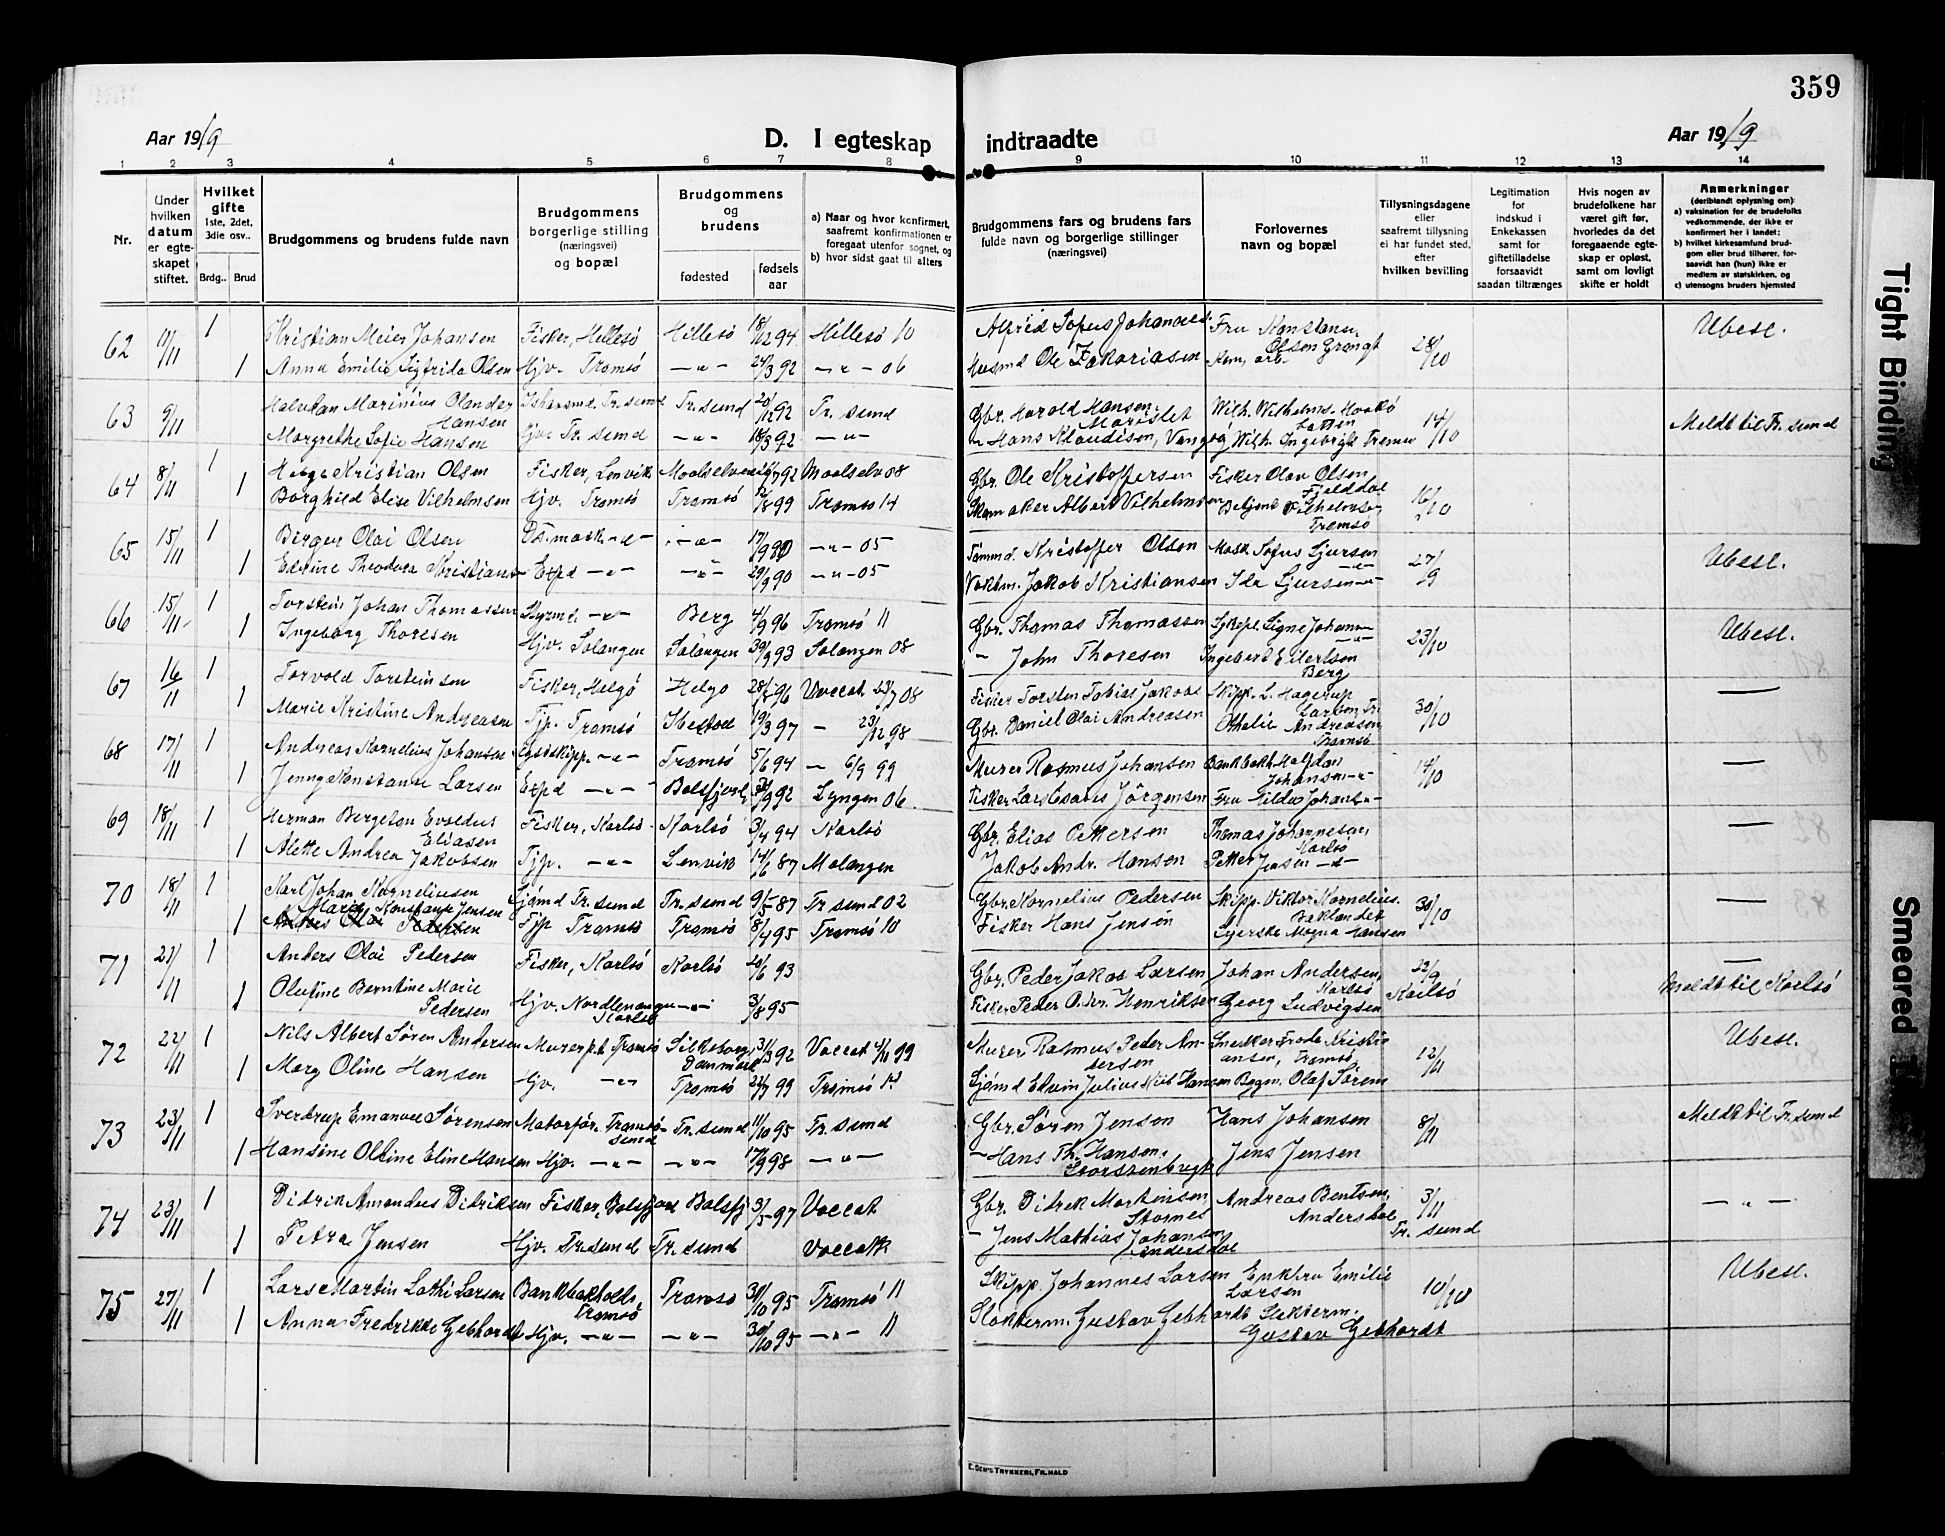 359
Aar 1919
D. I egteskap indtraadte
Aar 1919
1 2 3 4 5 6 7 8 9 10 11 12 13 14
Nr.
Under hvilken datum er egteskapet stiftet.
Hvilket gifte 1ste, 2det, 3die osv..
Brdg.. Brud
Brudgommens og brudens fulde navn
Brudgommens borgerlige stilling (næringsvei) og bopæl
Brudgommens og brudens
fødested
fødsels aar
a) Naar og hvor konfirmert, saafremt konfirmationen er foregaat utenfor sognet, og
b) hvor sidst gaat til alters
Brudgommens fars og brudens fars fulde navn og borgerlige stillinger (næringsvei)
Forlovernes navn og bopæl
Tillysningsdagene eller saafremt tillysning ei har fundet sted, efter hvilken bevilling
Legitimation for indskud i Enkekassen samt for giftetilladelse forsaavidt saadan tiltrænges
Hvis nogen av brudefolkene har været gift før, hvorledes da det foregaaende egteskap er opløst, samt om lovligt skifte er holdt
Anmerkninger (deriblandt oplysning om)
a) vaksination for de brudefolks vedkommende, der ikke er konfirmert her i landet;
b) hvilket kirkesamfund brudgom eller brud tilhører, forsaavidt han (hun) ikke er medlem av statskirken, og
c) utensogns bruders hjemsted
62 11/11 1 Kristian Meier Johansen Fisker, Hillesö Hillesö 18/12 94 Hillesö 10 Alfrid Sofus Johansen Fru Konstanse Olsen 28/10 Ubesl.
1 Anna Emilie Sigfrida Olsen Hjv. Tromsö -"- 24/3 92 -"- 06 Husmd Ole Zakariasen
63 9/11 Halvdan Marinius Olander Hansen Tr.sund Tr.sund 20/12 92 Tr.sund Gbr. Harold Hansen, Wilh. Wilhelms. 14/10 Meldt til Tr.sund
Margrethe Sofie Hansen Hjv. Tr.sund -"- 18/3 92 -"- -"- Hans Klaudisen, Vangsö Wilh. Ingebrigts. Tromsö
64 8/11 1 Helge Kristian Olsen Fisker, Lenvik Maalselven 92 Maalselv 08 Gbr. Ole Kristoffersen Fisker Olav Olsen Fjelddal 16/10
1 Borghild Elise Vilhelmsen Hjv. Tromsö Tromsö 12/8 99 Tromsö 14 Skomaker Albert Vilhelmsen Betjent Vilhelmsen, Tromsö
65 15/11 1 Birger Olai Olsen -"- -"- 17/9 90 -"- 05 Tömmd. Kristoffer Olsen Mask Sofus Sjursen -"- 27/9 Ubesl.
1 Edvine Theodora Kristiansen Expd -"- -"- 29/9 90 -"- 05 Vaktm. Jakob Kristiansen Ida Sjursen -"-
66 15/11 1 Torstein Johan Thomassen Styrmd. -"- Berg 4/9 96 Tromsö 11 Gbr. Thomas Thomassen Sykepl. Signe Johansen -"- 23/10 Ubesl.
1 Ingeborg Thoresen Hjv. Salangen Salangen 30/9 93 Salangen 08 - John Thoresen Ingebert Eilertsen Berg
67 16/11 1 Torvold Torsteinsen Fisker, Helgö Helgö 28/5 96 Vaccat 08 Fisker Torsten Tobias Jakobs Skipp. L. Hagerup Larsen, Tr. 30/10 —
1 Marie Kristine Andreasen Tjp. Tromsö Ibestad 19/3 97 - 23/12 98 Gbr. Daniel Olai Andreasen Othelie Andreasen Tromsö
68 17/11 1 Andreas Kornelius Johansen -"- Tromsö 5/6 94 - 6/9 99 Murer Rasmus Johansen Bankbokh. Halfdan Johansen -"- 14/10 —
1 Jenny Konstanse Larsen Expd -"- Balsfjord 92 Lyngen 06. Fisker Lars Jörgensen Fru Hilda Johans -"-
69 18/11 1 Herman Bergeton Evaldus Eliasen Fisker, Karlsö Karlsö 3/4 94 Karlsö Gbr. Elias Pettersen Thomas Johannesen, Karlsö —
1 Alette Andrea Jakobsen Tjp. -"- Lenvik 14/6 87 Malangen Jakob Andr. Hansen Petter -"-
70 18/11 1 Karl Johan Korneliusen Sjömd Tr.sund Tr.sund 9/5 87 Tr.sund 02 Gbr. Kornelius Pedersen Skipp. Viktor Kornelius. Baklandet 30/10 —
1 Marie Konstanse Jensen Tjp Tromsö Tromsö 8/4 95 Tromsö 10 Fisker Hans Jensen Syerske Magna Hansen
71 21/11 1 Anders Olai Pedersen Fisker, Karlsö Karlsö 20/6 93 Gbr. Peder Jakob Larsen Johan Andersen, Karlsö 22/9 Karlsö —
1 Olufine Berntine Marie Pedersen Hjv. Nordlenangen Karlsö -"- 3/8 95 Fisker Peder Andr. Henriksen Georg Ludvigsen Meldt til Karlsö
72 22/11 1 Nils Albert Sören Andersen Murer p.t Tromsö Silkeborg Danmark 31/12 92 Vaccat 4/11 99 Murer Rasmus Peder Andersen Snedker Frode Kristiansen, Tromsö 12/11 Ubesl.
1 Mary Oline Hansen Hjv. -"- Tromsö 24/7 99 Tromsö 14 Sjömd Edvin Julius Hansen Bygm. Olaf Sörem
73 23/11 1 Sverdrup Emanuel Sörensen Motorför. Tromsösund Tr.sund 11/10 95 Tr.sund Gbr. Sören Jensen Hans Johansen 8/11 Meldt til Tr.sund
1 Hansine Oltine Eline Hansen Hjv. -"- -"- 17/9 98 -"- - Hans Th. Hansen, Jens Jensen
74 23/11 1 Didrik Amandus Didriksen Fisker, Balsfjord Balsfj 3/5 97 Vaccat Gbr. Didrik Martinsen, Stornes Andreas Bentsen, Andersdal 3/11 Tr.sund -"-
1 Petra Jensen Hjv. Tr.sund Tr.sund Vaccatt - Jens Mathias Johansen Andersdal
75 27/11 1 Lars Martin Lothi Larsen Bankbokholds Tromsö Tromsö 31/10 95 Tromsö 11 Skipp. Johannes Larsen Enkfru Emilie Larsen 10/10 Ubesl.
1 Anna Fredrikke Gebhardt Hjv. -"- -"- 30/10 95 -"- 11 Slakterm. Gustav Gebhardt Slakterm. Gustav Gebhardt
E. SEM'S TRYKKERI, FR.HALD
Tight Binding
Smeared